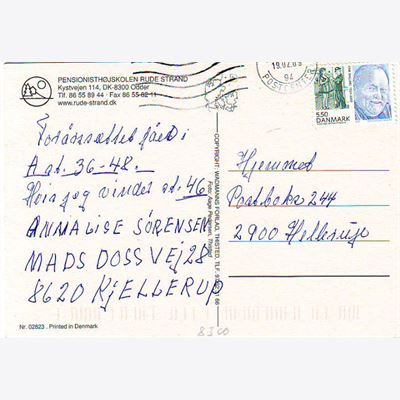 PENSIONISTHØJSKOLEN RUDE STRAND
Kystvejen 114, DK-8300 Odder
Tlf. 86 55 89 44 · Fax 86 55 82 11
www.rude-strand.dk
19.02.09
POSTCENTER
94
5.50
DANMARK
A at. 36-48.
jeg vinder at. 46
ANNALISE SØRENSEN
MADS DOSS VEJ 28
8620 KJELLERUP
Nr. 02823 . Printed in Denmark
8300
COPYRIGHT: WADMANNS FORLAG, THISTED, TLF.
Hjemmet
Postboks 244
2900 Hellerup